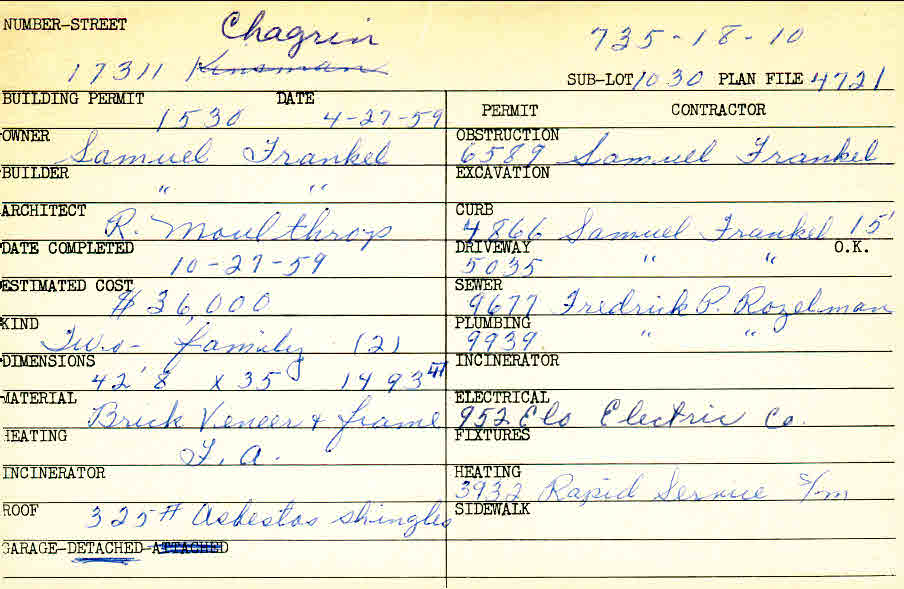 NUMBER-STREET Chagrin 735-18-10
17311 Kinsman SUB-LOT 1030 PLAN FILE 4721
BUILDING PERMIT 1530 DATE 4-27-59
OWNER Samuel Frankel
BUILDER " "
ARCHITECT R. Moulthrop
DATE COMPLETED 10-27-59
ESTIMATED COST $36,000
KIND Two-family (2)
DIMENSIONS 42'8 x 35 1493
MATERIAL Brick Veneer & frame
HEATING F.A.
INCINERATOR
ROOF 325# Asbestos shingles
GARAGE-DETACHED-ATTACHED
PERMIT CONTRACTOR
OBSTRUCTION 6589 Samuel Frankel
EXCAVATION
CURB 4866 Samuel Frankel 15'
DRIVEWAY 5035 " " O.K.
SEWER 9677 Fredrick P. Rozelman
PLUMBING 9939 " "
INCINERATOR
ELECTRICAL 952 Elo Electric Co.
FIXTURES
HEATING 3932 Rapid Service S/m
SIDEWALK